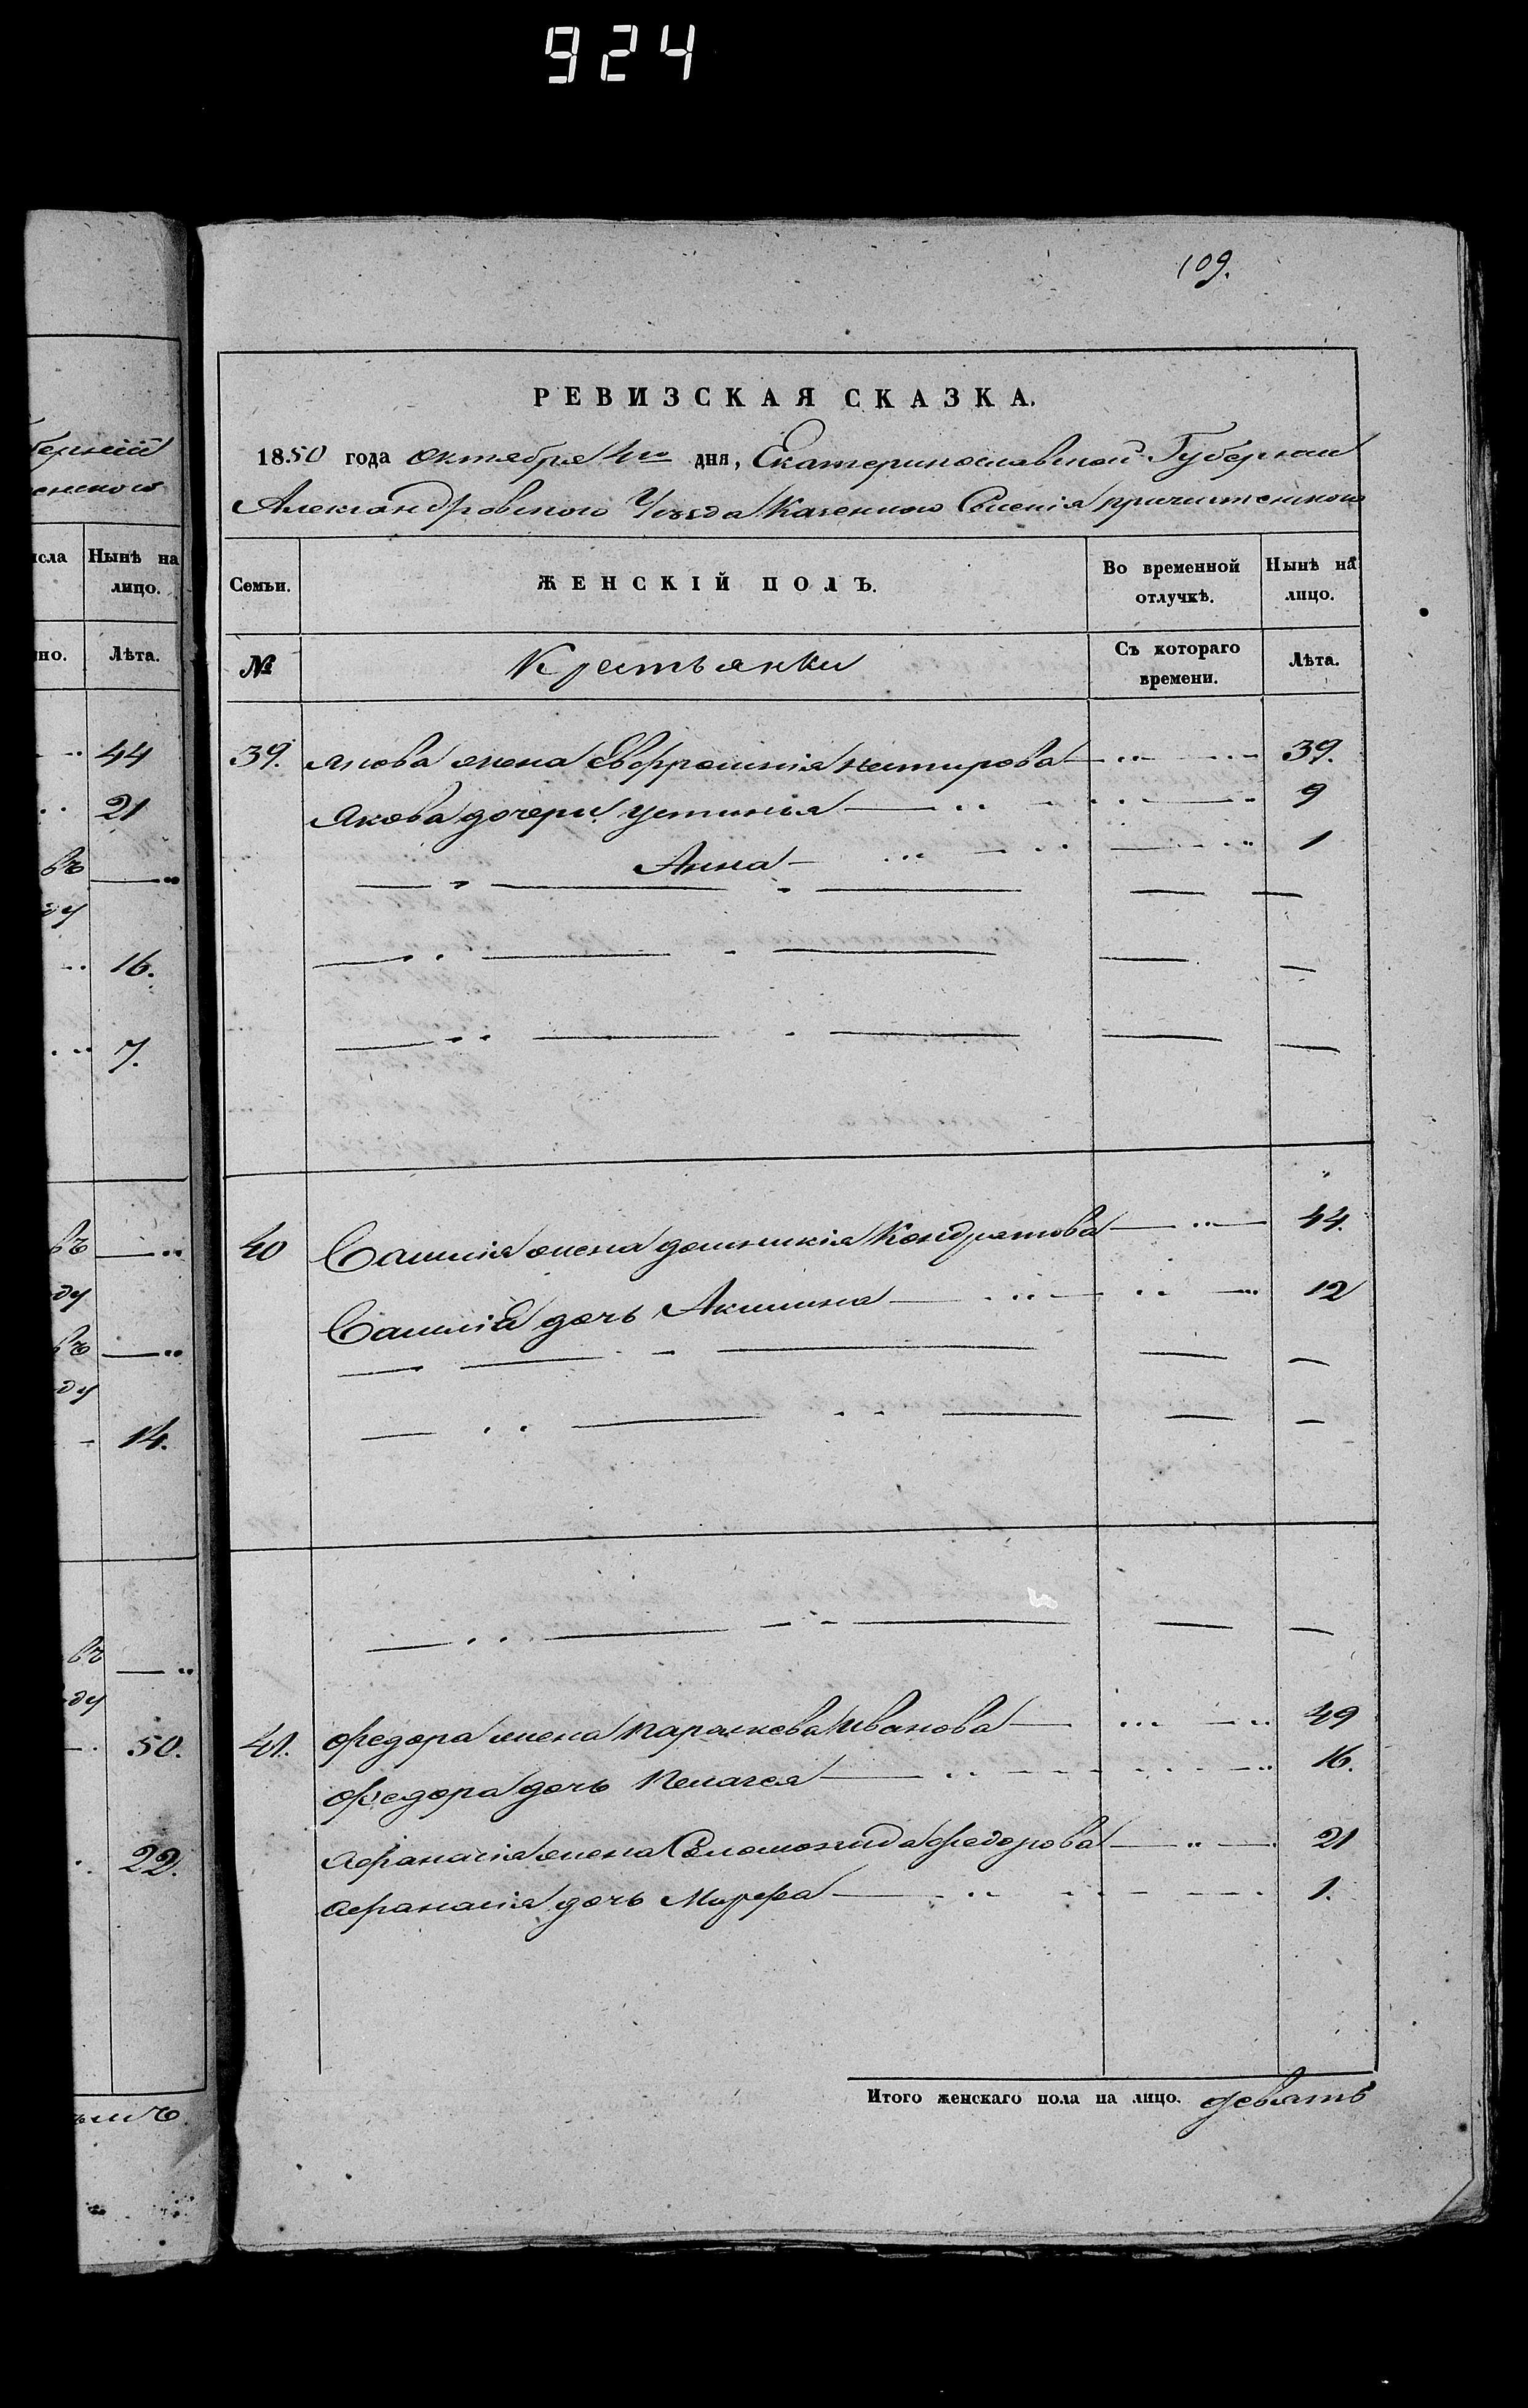 924
109.
РЕВИЗСКАЯ СКАЗКА.
1850 года октября 4го дня, Екатеринославской Губернии
Александровского Уезда Казенного Селенія
Семьи. ЖЕНСКІЙ ПОЛЪ. Во временной отлучкѣ. Нынѣ на лицо.
№ Крестьянки Съ котораго времени. Лѣта.
39. Якова жена Евфросинія 39.
Якова дочери Устинія 9
Анна 1
40 жена Кондратова 44.
дочь Акилина 12
41. Федора жена Параскева Иванова 49
Федора дочь Пелагея 16.
Афанасія жена Соломонида Федорова 21
Афанасія дочь Марфа 1.
Итого женскаго пола на лицо. девять
Нынѣ на лицо.
Лѣта.
44
21
16.
7.
14.
50.
22.